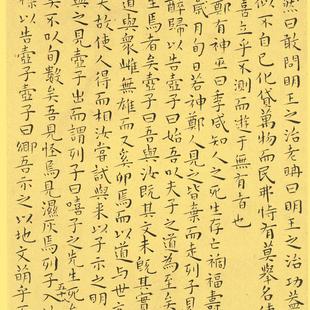 然曰敢問明王之治老聃曰明王之治功蓋
似不自己化貸萬物而民弗恃有莫舉名使
喜立乎不測而遊于無有者也
鄭有神巫曰季咸知人之死生存亡禍福壽
歲月旬日若神鄭人見之皆棄而走列子見
醉歸以告壺子曰始吾以夫子之道為至矣
至焉者矣壺子曰吾與汝既其文未既其實
道與眾雌無雄而又奚卵焉而以道與世
夫故使人得而相汝嘗試與来以予示之明
與之見壺子出而謂列子曰嘻子之先生死
矣不以旬數矣吾見怪焉見濕灰焉列子入
襟以告壺子壺子曰鄉吾示之以地文萌乎